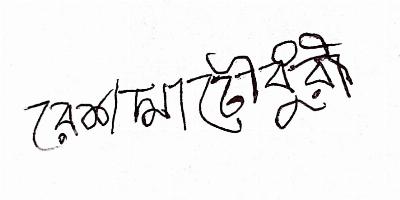 রেশমা চৌধুরী